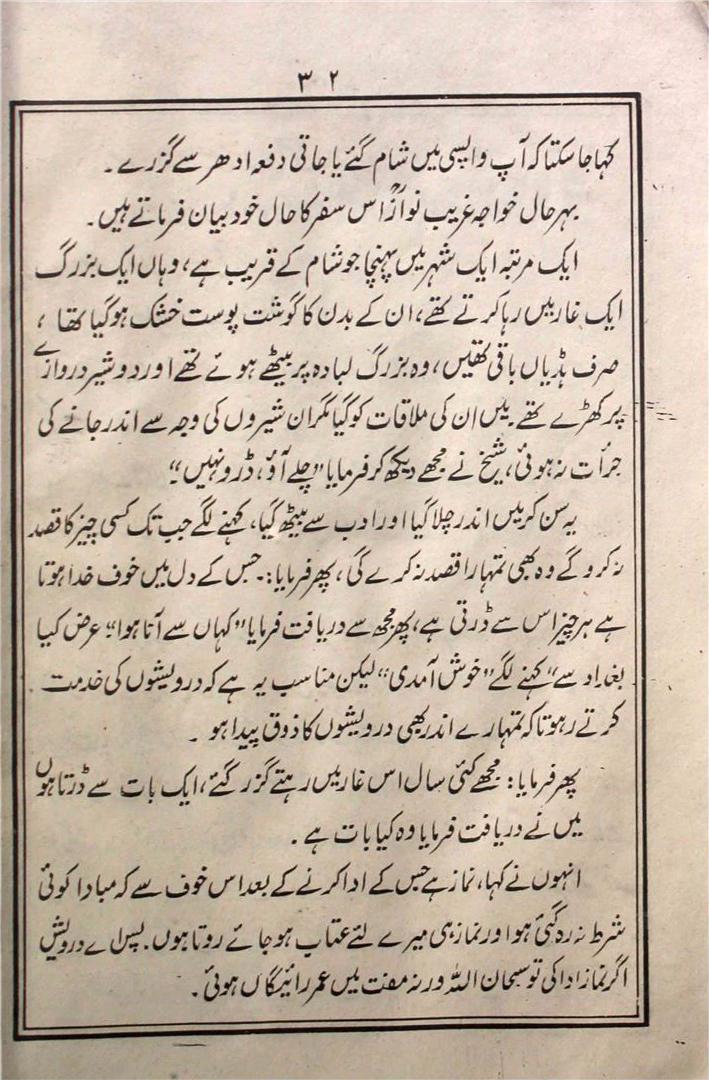 ۳۲
کہا جا سکتا کہ آپ واپسی میں شام گئے یا جاتی دفعہ ادھر سے گزرے۔
بہر حال خواجہ غریب نوازؒ اس سفر کا حال خود بیان فرماتے ہیں۔
ایک مرتبہ ایک شہر میں پہنچا جو شام کے قریب ہے، وہاں ایک بزرگ
ایک غار میں رہا کرتے تھے، ان کے بدن کا گوشت پوست خشک ہو گیا تھا،
صرف ہڈیاں باقی تھیں، وہ بزرگ لبادہ پر بیٹھے ہوئے تھے اور دو شیر دروازے
پر کھڑے تھے میں ان کی ملاقات کو گیا مگر ان شیروں کی وجہ سے اندر جانے کی
جرأت نہ ہوئی، شیخ نے مجھے دیکھ کر فرمایا "چلے آؤ، ڈرو نہیں"
یہ سن کر میں اندر چلا گیا اور ادب سے بیٹھ گیا، کہنے لگے جب تک کسی چیز کا قصد
نہ کرو گے وہ بھی تمہارا قصد نہ کرے گی، پھر فرمایا:۔ جس کے دل میں خوف خدا ہوتا
ہے ہر چیز اس سے ڈرتی ہے، پھر مجھ سے دریافت فرمایا "کہاں سے آنا ہوا" عرض کیا
بغداد سے" کہنے لگے "خوش آمدی" لیکن مناسب یہ ہے کہ درویشوں کی خدمت
کرتے رہو تاکہ تمہارے اندر بھی درویشوں کا ذوق پیدا ہو۔
پھر فرمایا: مجھے کئی سال اس غار میں رہتے گزر گئے، ایک بات سے ڈرتا ہوں
میں نے دریافت فرمایا وہ کیا بات ہے۔
انہوں نے کہا، نماز ہے جس کے ادا کرنے کے بعد اس خوف سے کہ مبادا کوئی
شرط نہ رہ گئی ہو اور نماز ہی میرے لئے عتاب ہو جائے روتا ہوں۔ پس اے درویش
اگر نماز ادا کی تو سبحان اللہ ورنہ مفت میں عمر رائیگاں ہوئی۔